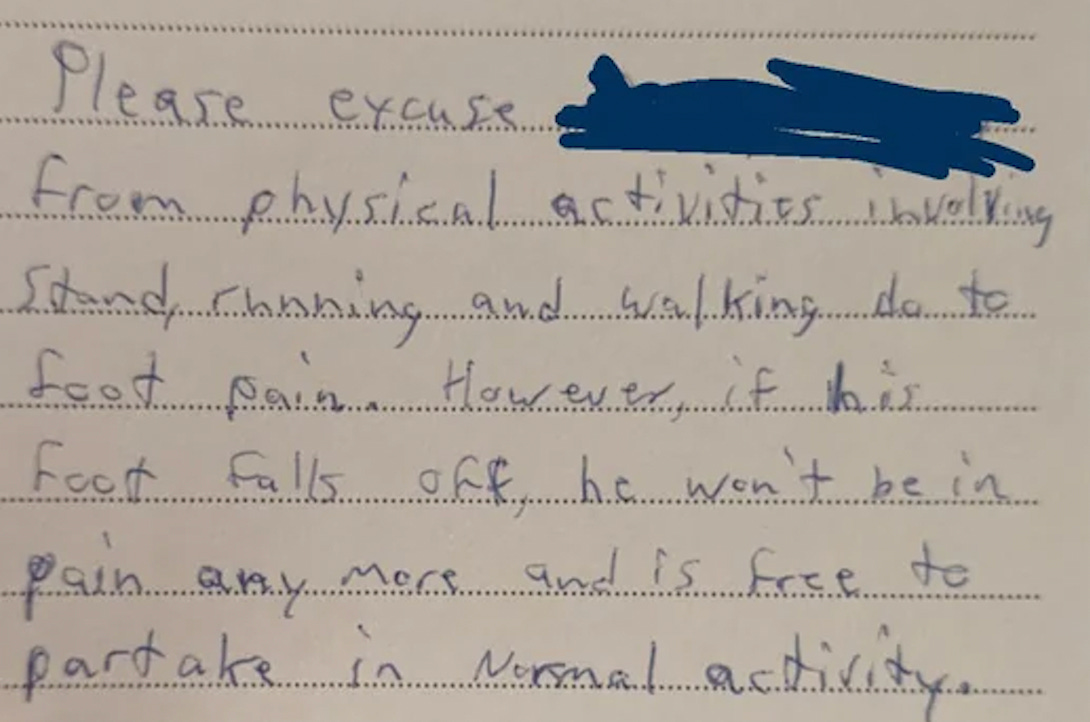 Please excuse
from physical activities involving
Stand, running and walking do to
foot pain. However, if his
foot falls off, he won't be in
pain any more and is free to
partake in Normal activity.